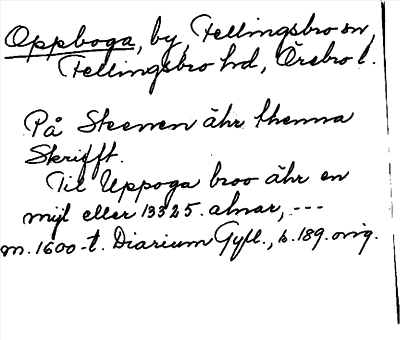 Oppboga, by, Fellingsbro sn,
Fellingsbro hd, Örebro l.
På Steenen ähr thenna
Skrifft.
Til Uppoga broo ähr en
mijl eller 13325. alnar, ---
m. 1600-t. Diarium Gyll., s. 189. orig.